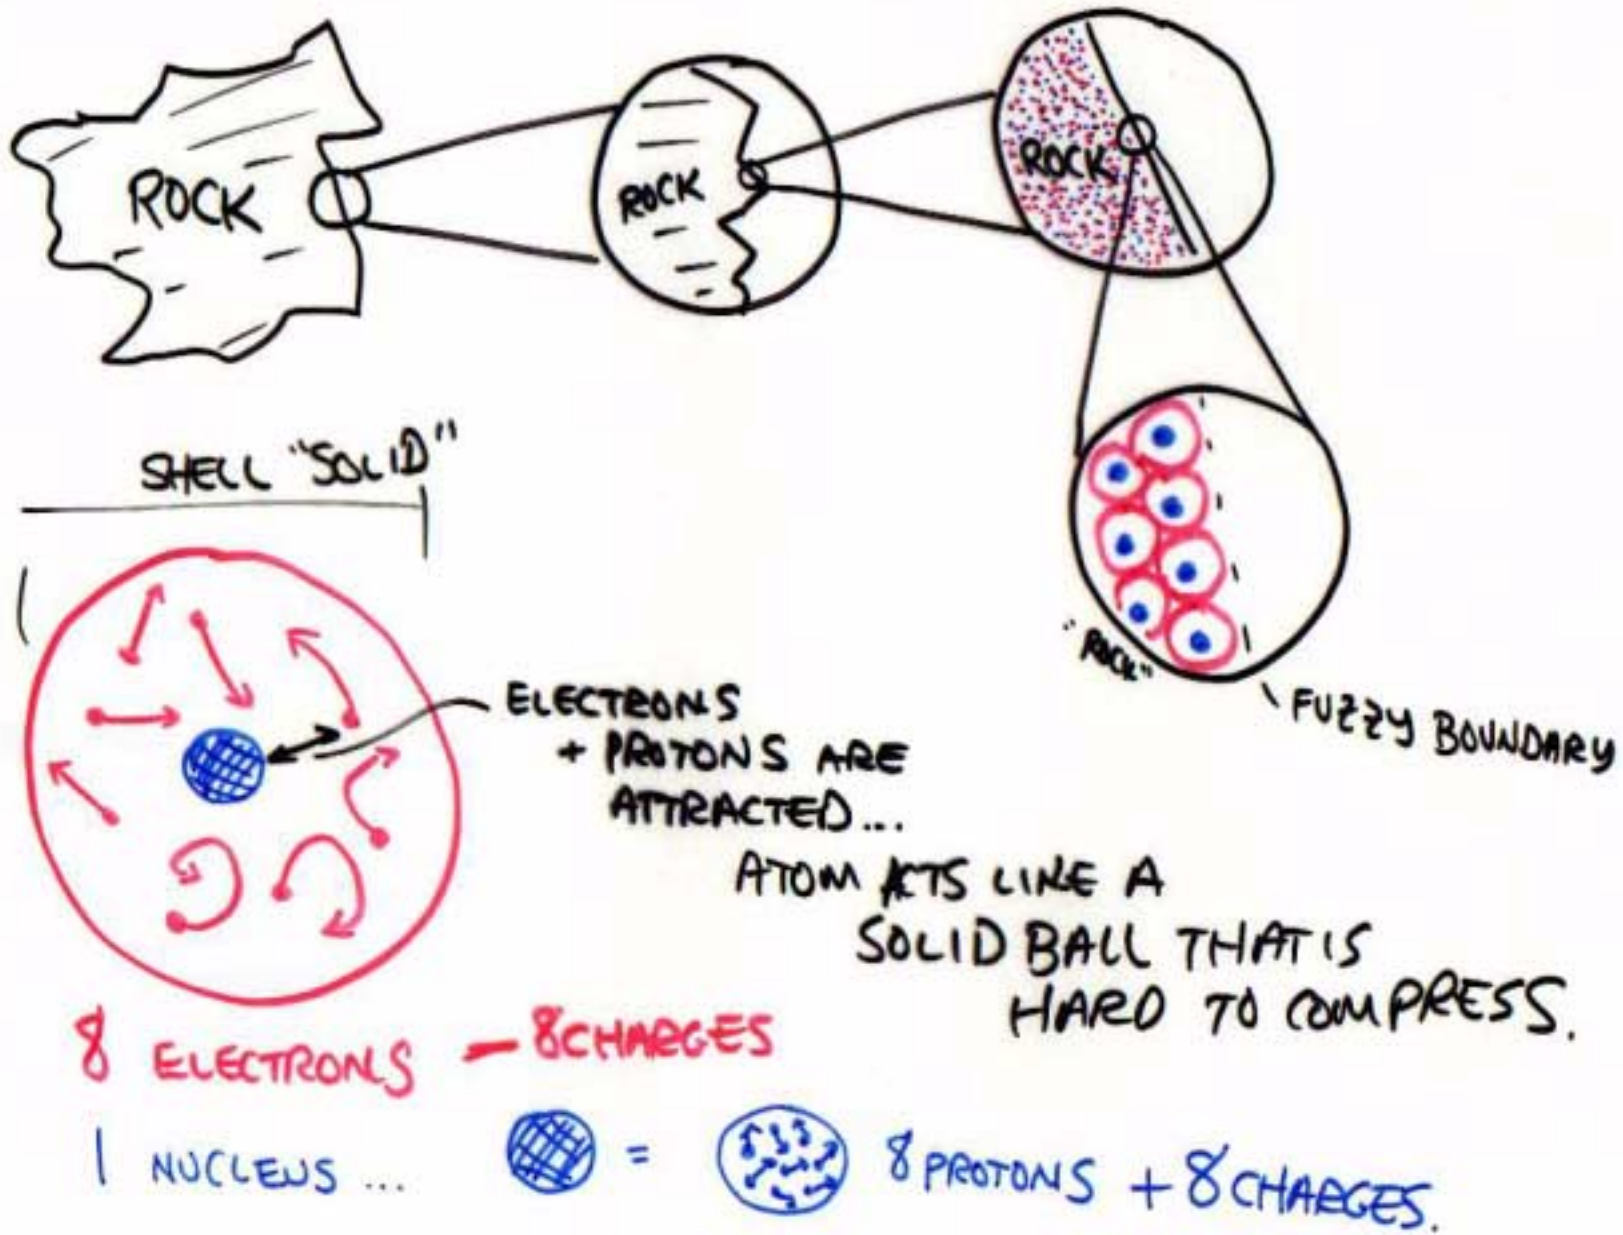 ROCK
ROCK
ROCK
"ROCK"
FUZZY BOUNDARY
SHELL "SOLID"
ELECTRONS
+ PROTONS ARE
ATTRACTED...
ATOM ACTS LIKE A
SOLID BALL THAT IS
HARD TO COMPRESS.
8 ELECTRONS - 8 CHARGES
1 NUCLEUS... = 8 PROTONS + 8 CHARGES.